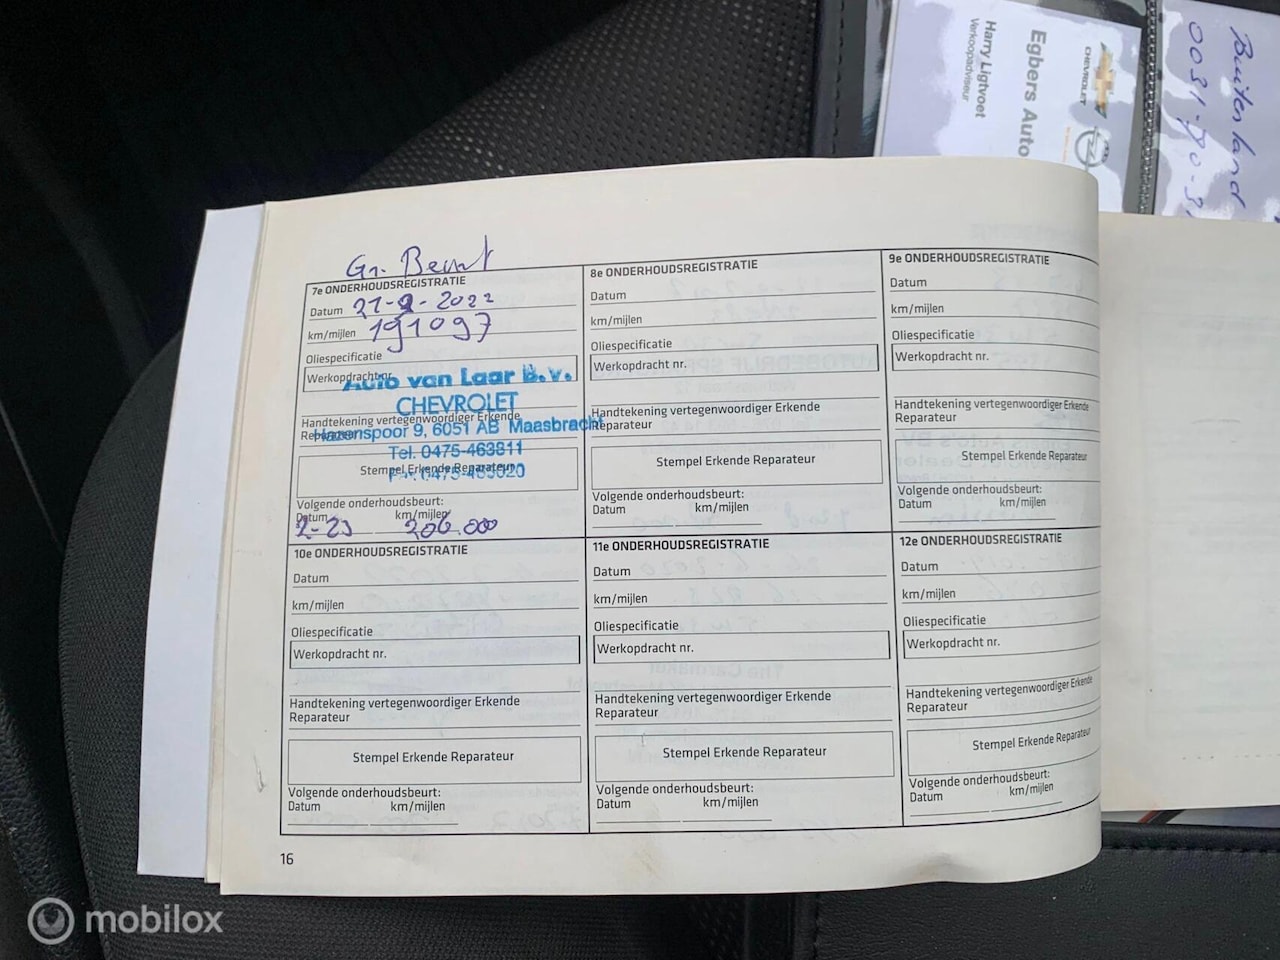 Harry Ligtvoet
Verkoopadviseur
Egbers Auto
CHEVROLET
Buitenland
Gr. Beurt
7e ONDERHOUDSREGISTRATIE
Datum 21-2-2022
km/mijlen 191097
Oliespecificatie
Werkopdracht nr.
Auto van Laar B.V.
CHEVROLET
Handtekening vertegenwoordiger Erkende
Reparateur
Hazenspoor 9, 6051 AB Maasbracht
Tel. 0475-463811
Stempel Erkende Reparateur
Volgende onderhoudsbeurt:
Datum km/mijlen
2-23 206.000
8e ONDERHOUDSREGISTRATIE
Datum
km/mijlen
Oliespecificatie
Werkopdracht nr.
Handtekening vertegenwoordiger Erkende
Reparateur
Stempel Erkende Reparateur
Volgende onderhoudsbeurt:
Datum km/mijlen
9e ONDERHOUDSREGISTRATIE
Datum
km/mijlen
Oliespecificatie
Werkopdracht nr.
Handtekening vertegenwoordiger Erkende
Reparateur
Stempel Erkende Reparateur
Volgende onderhoudsbeurt:
Datum km/mijlen
10e ONDERHOUDSREGISTRATIE
Datum
km/mijlen
Oliespecificatie
Werkopdracht nr.
Handtekening vertegenwoordiger Erkende
Reparateur
Stempel Erkende Reparateur
Volgende onderhoudsbeurt:
Datum km/mijlen
11e ONDERHOUDSREGISTRATIE
Datum
km/mijlen
Oliespecificatie
Werkopdracht nr.
Handtekening vertegenwoordiger Erkende
Reparateur
Stempel Erkende Reparateur
Volgende onderhoudsbeurt:
Datum km/mijlen
12e ONDERHOUDSREGISTRATIE
Datum
km/mijlen
Oliespecificatie
Werkopdracht nr.
Handtekening vertegenwoordiger Erkende
Reparateur
Stempel Erkende Reparateur
Volgende onderhoudsbeurt:
Datum km/mijlen
16
mobilox